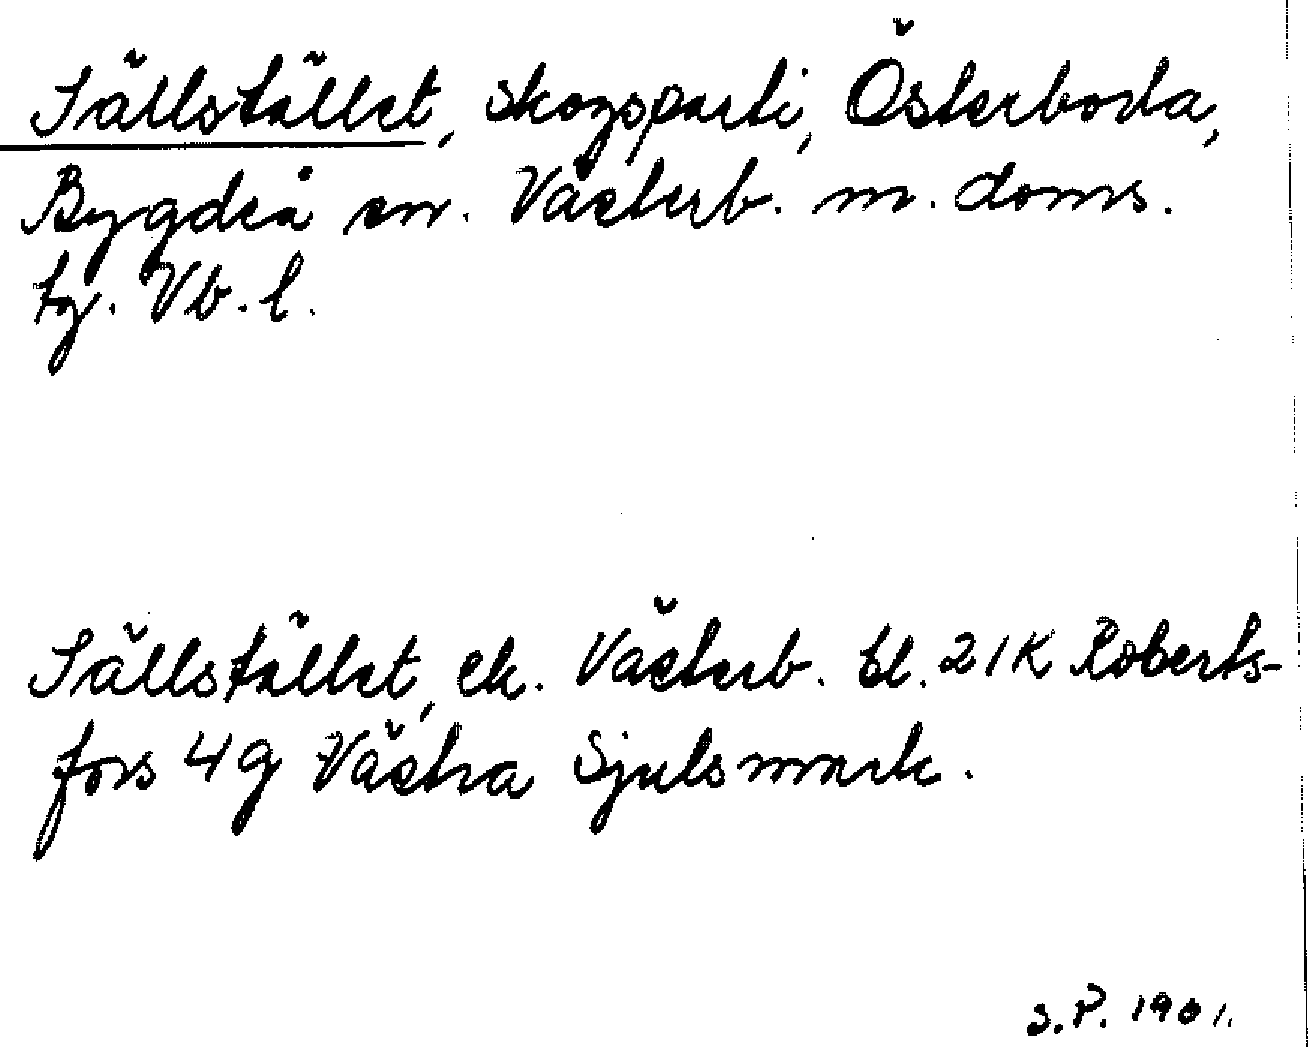 Sällstället, skogsparti, Österboda,
Bygdeå sn. Västerb. m. doms.
tg. Vb. l.
Sällstället, ek. Västerb. bl. 21K Roberts-
fors 4g Västra Sjulsmark.
S.P. 1961.